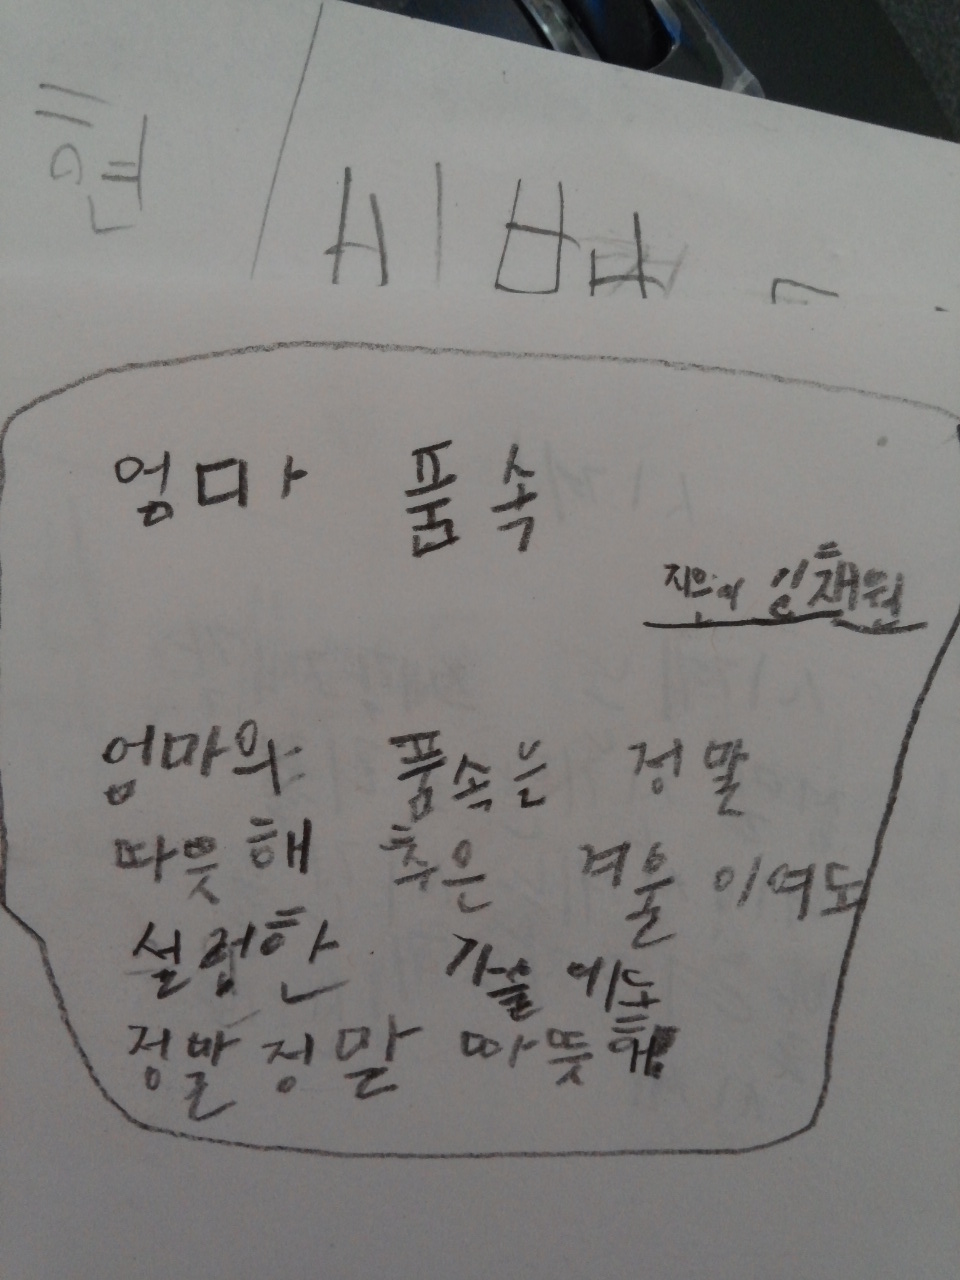 엄마 품속
지은이 김채원
엄마의 품속은 정말
따뜻해 추은 겨울 이여도
가을 에도
정말 정말 따뜻해!